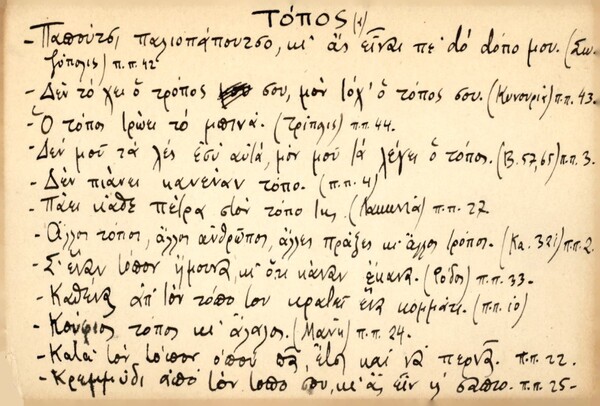 ΤΟΠΟΣ (1)
- Παπούτσι παλιοπάπουτσο, κι' ἂς εἶναι πὲ τὸ τόπο μου. (Σω-
ζόπολις) π.π. 42
- Δὲν τὸ χει ὁ τρόπος σου, μὸν τὸχ' ὁ τόπος σου. (Κυνουρία) π.π. 43.
- Ὁ τόπος τρώει τὸ μπινά. (Τρίπολις) π.π. 44.
- Δὲν μοῦ τὰ λὲς ἐσὺ αὐτά, μὸν μοῦ τὰ λέγει ὁ τόπος. (Β. 57,65) π.π. 3.
- Δὲν πιάνει κανέναν τόπο. (π.π. 4)
- Πάει κάθε πέτρα στὸν τόπο της. (Λακωνία) π.π. 27
- Ἄλλος τόπος, ἄλλος ἄνθρωπος, ἄλλες πράξες κι' ἄλλος τρόπος. (Κα. 321) π.π. 2.
- Σ' εἶναν τόπον ἤμουνα, κι' ὅτι κάναν ἔκανα. (Ρόδος) π.π. 33.-
- Καθένας ἀπ' τὸν τόπο του κρατεῖ ἕνα κομμάτι. (π.π. 10)
- Κούφιος τόπος κι' ἄλαλος. (Μάνη) π.π. 24.
- Κατὰ τὸν τόπον ὅπου πᾷ, ἔτσι καὶ νὰ περνᾷ. π.π. 22.
- Κρεμμύδι ἀπὸ τὸν τόπο σου, κι' ἂς εἶν κι' σάπιο. π.π. 25-